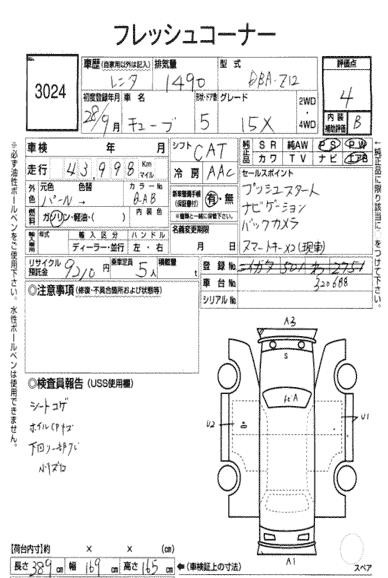 フレッシュコーナー
No. 3024
車歴(自家用以外は記入) 排気量 型式 評価点
レンタ 1490 DBA-Z12 4
初度登録年月 車名 形状・ドア数 グレード 2WD 内装
28/9月 キューブ 5 15X 4WD 補助評価 B
車検 年 月 シフト CAT 純正品 SR 純AW PS PW
カワ TV ナビ エアB
走行 43,998 Km マイル 冷房 AAC
セールスポイント
外色 元色 色替 カラーNo. 新車整備手帳(保証書) 有・無
パール→ QAB
プッシュスタート
燃料 ガソリン・軽油・( ) 内装色
ナビゲーション
輸入車 輸入区分 ハンドル 名義変更期限
バックカメラ
ディーラー・並行 左・右 月 日
スマートキーX2(現車)
リサイクル預託金 9210円 乗車定員 5人 積載量 t
登録No. ニイガタ 501 わ 2751
車台No. 320688
シリアルNo.
◎注意事項(修復・不具合箇所および状態等)
A3
S
◎検査員報告(USS使用欄)
シートコゲ
ホイルCPキズ
U2
U1
A1
【荷台内寸】約 × × (cm)
長さ 389cm 幅 169cm 高さ 165cm ←(車検証上の寸法) スペア
※必ず油性ボールペンをご使用下さい。水性ボールペンは使用できません。
※純正品に限り該当に○をつけて下さい。